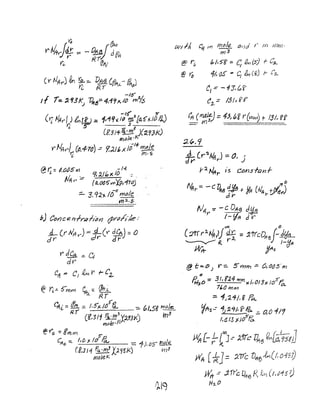 r N_Ar ∫_{r_i}^{r_o} dr/r = - D_AB/RT ∫ dp_A
(r N_Ar) ln r_o/r_i = D_AB/RT (p_Ai - p_Ao)
if T = 293K,
(8.314 Pa·m³/mole·K)(293K)
r N_Ar (0.470) = 9.216 x 10^-14 mole/m·s
@ r_i = 0.005 m
N_Ar = 9.216 x 10^-14 / (0.005 m)(0.470)
= 3.92 x 10^-11 mole/m²·s
b) Concentration profile:
d/dr (r N_Ar) = d/dr (r dC_A/dr) = 0
r dC_A/dr = C_1
C_A = C_1 ln r + C_2
@ r_i = 5mm C_Ai = p_Ai/RT
C_Ai = p_Ai/RT = 1.5x10^5 Pa / (8.314 Pa·m³/mole·K)(293K) = 61.58 mole/m³
@ r_o = 8mm
C_Ao = 1.0 x 10^5 Pa / (8.314 Pa·m³/mole·K)(293K) = 41.05 mole/m³
with C_A in mole/m³ and r in mm
@ r_i 61.58 = C_1 ln(5) + C_2
@ r_o 41.05 = C_1 ln(8) + C_2
C_1 = -43.68
C_2 = 131.88
C_A (mole/m³) = 43.68 r (mm) + 131.88
26.9
d/dr (r² N_Ar) = 0.
r² N_Ar is constant
N_Ar = - c D_AB dy_A/dr + y_A (N_Ar + N_Br)
N_Ar = - c D_AB/(1-y_A) dy_A/dr
(2π r² N_A) ∫_R^∞ dr/r² = 2π c D_AB ∫ - dy_A/(1-y_A)
W_A
@ t=0, r = 5mm = 0.005 m
p_H2O = 31.824 mm/760 mm x 1.013x10^5 Pa
= 4,241.8 Pa
y_As = 4,241.8 Pa / 1.013x10^5 Pa = 0.0419
W_A [1/R] = 2π c D_AB ln (1.0437)
W_A = 2π c D_AB R ln (1.0437)
H2O
219